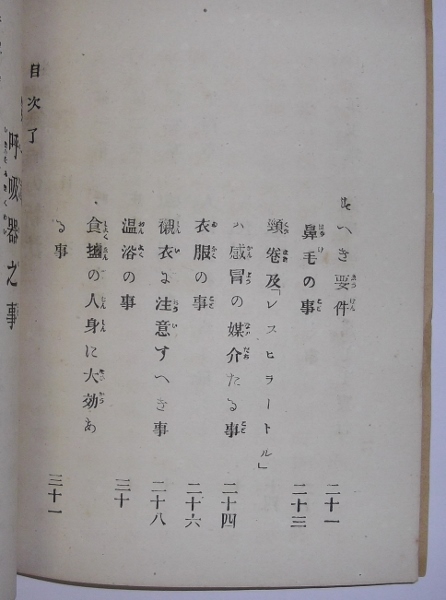 べき要件 二十一
鼻毛の事 二十三
頸卷及「レスヒラートル」
ハ感冒の媒介たる事 二十四
衣服の事 二十六
襯衣に注意すへき事 二十八
温浴の事 三十
食鹽の人身に大効あ
る事 三十一
目次了
呼吸器之事